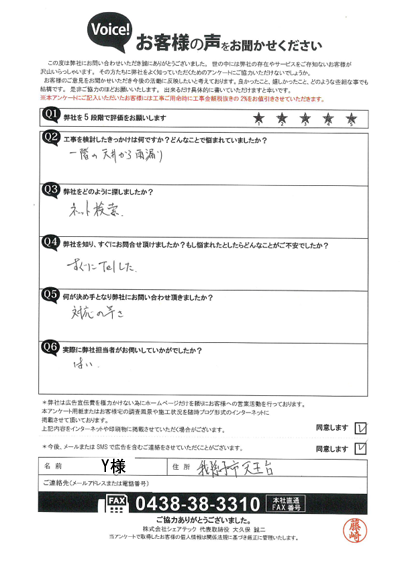 Voice!
お客様の声をお聞かせください
この度は弊社にお問い合わせいただき誠にありがとうございました。世の中には弊社の存在やサービスをご存知ないお客様が
沢山いらっしゃいます。その方たちに弊社をよく知っていただくためのアンケートにご協力いただけないでしょうか。
お客様のご意見をお聞かせいただき今後の活動に反映したいと考えております。良かったこと、嬉しかったこと、どのような些細な事でも
結構です。是非ご協力のほどお願いします。出来るだけ具体的に書いていただけますと幸いです。
※本アンケートにご記入いただいたお客様には工事ご用命時に工事金額税抜きの2%をお値引きさせていただきます。
Q1 弊社を5段階で評価をお願いします
★ ★ ★ ★ ★
Q2 工事を検討したきっかけは何ですか?どんなことで悩まれていましたか?
一階の天井から雨漏り
Q3 弊社をどのように探しましたか?
ネット検索
Q4 弊社を知り、すぐにお問合せ頂けましたか?もし悩まれたとしたらどんなことがご不安でしたか?
すぐにTelした
Q5 何が決め手となり弊社にお問い合わせ頂きましたか?
対応の早さ
Q6 実際に弊社担当者がお伺いしていかがでしたか?
はい
*弊社は広告宣伝費を極力かけない為にホームページだけを頼りにお客様への営業活動を行っております。
本アンケート用紙またはお客様宅の調査風景や施工状況を随時ブログ形式のインターネットに
掲載させて頂いております。
上記内容をインターネットや印刷物に掲載させていただく場合がございます。
同意します
*今後、メールまたはSMSで広告を含むご連絡をさせていただくことがございます。
同意します
名前 Y様 住所 我孫子市天王台
ご連絡先(メールアドレスまたは電話番号)
FAX 0438-38-3310 本社直通 FAX番号
ご協力ありがとうございました。
株式会社シェアテック 代表取締役 大久保 誠二
当アンケートで取得したお客様の個人情報は関係法規に基づき厳正に管理いたします。
藤崎